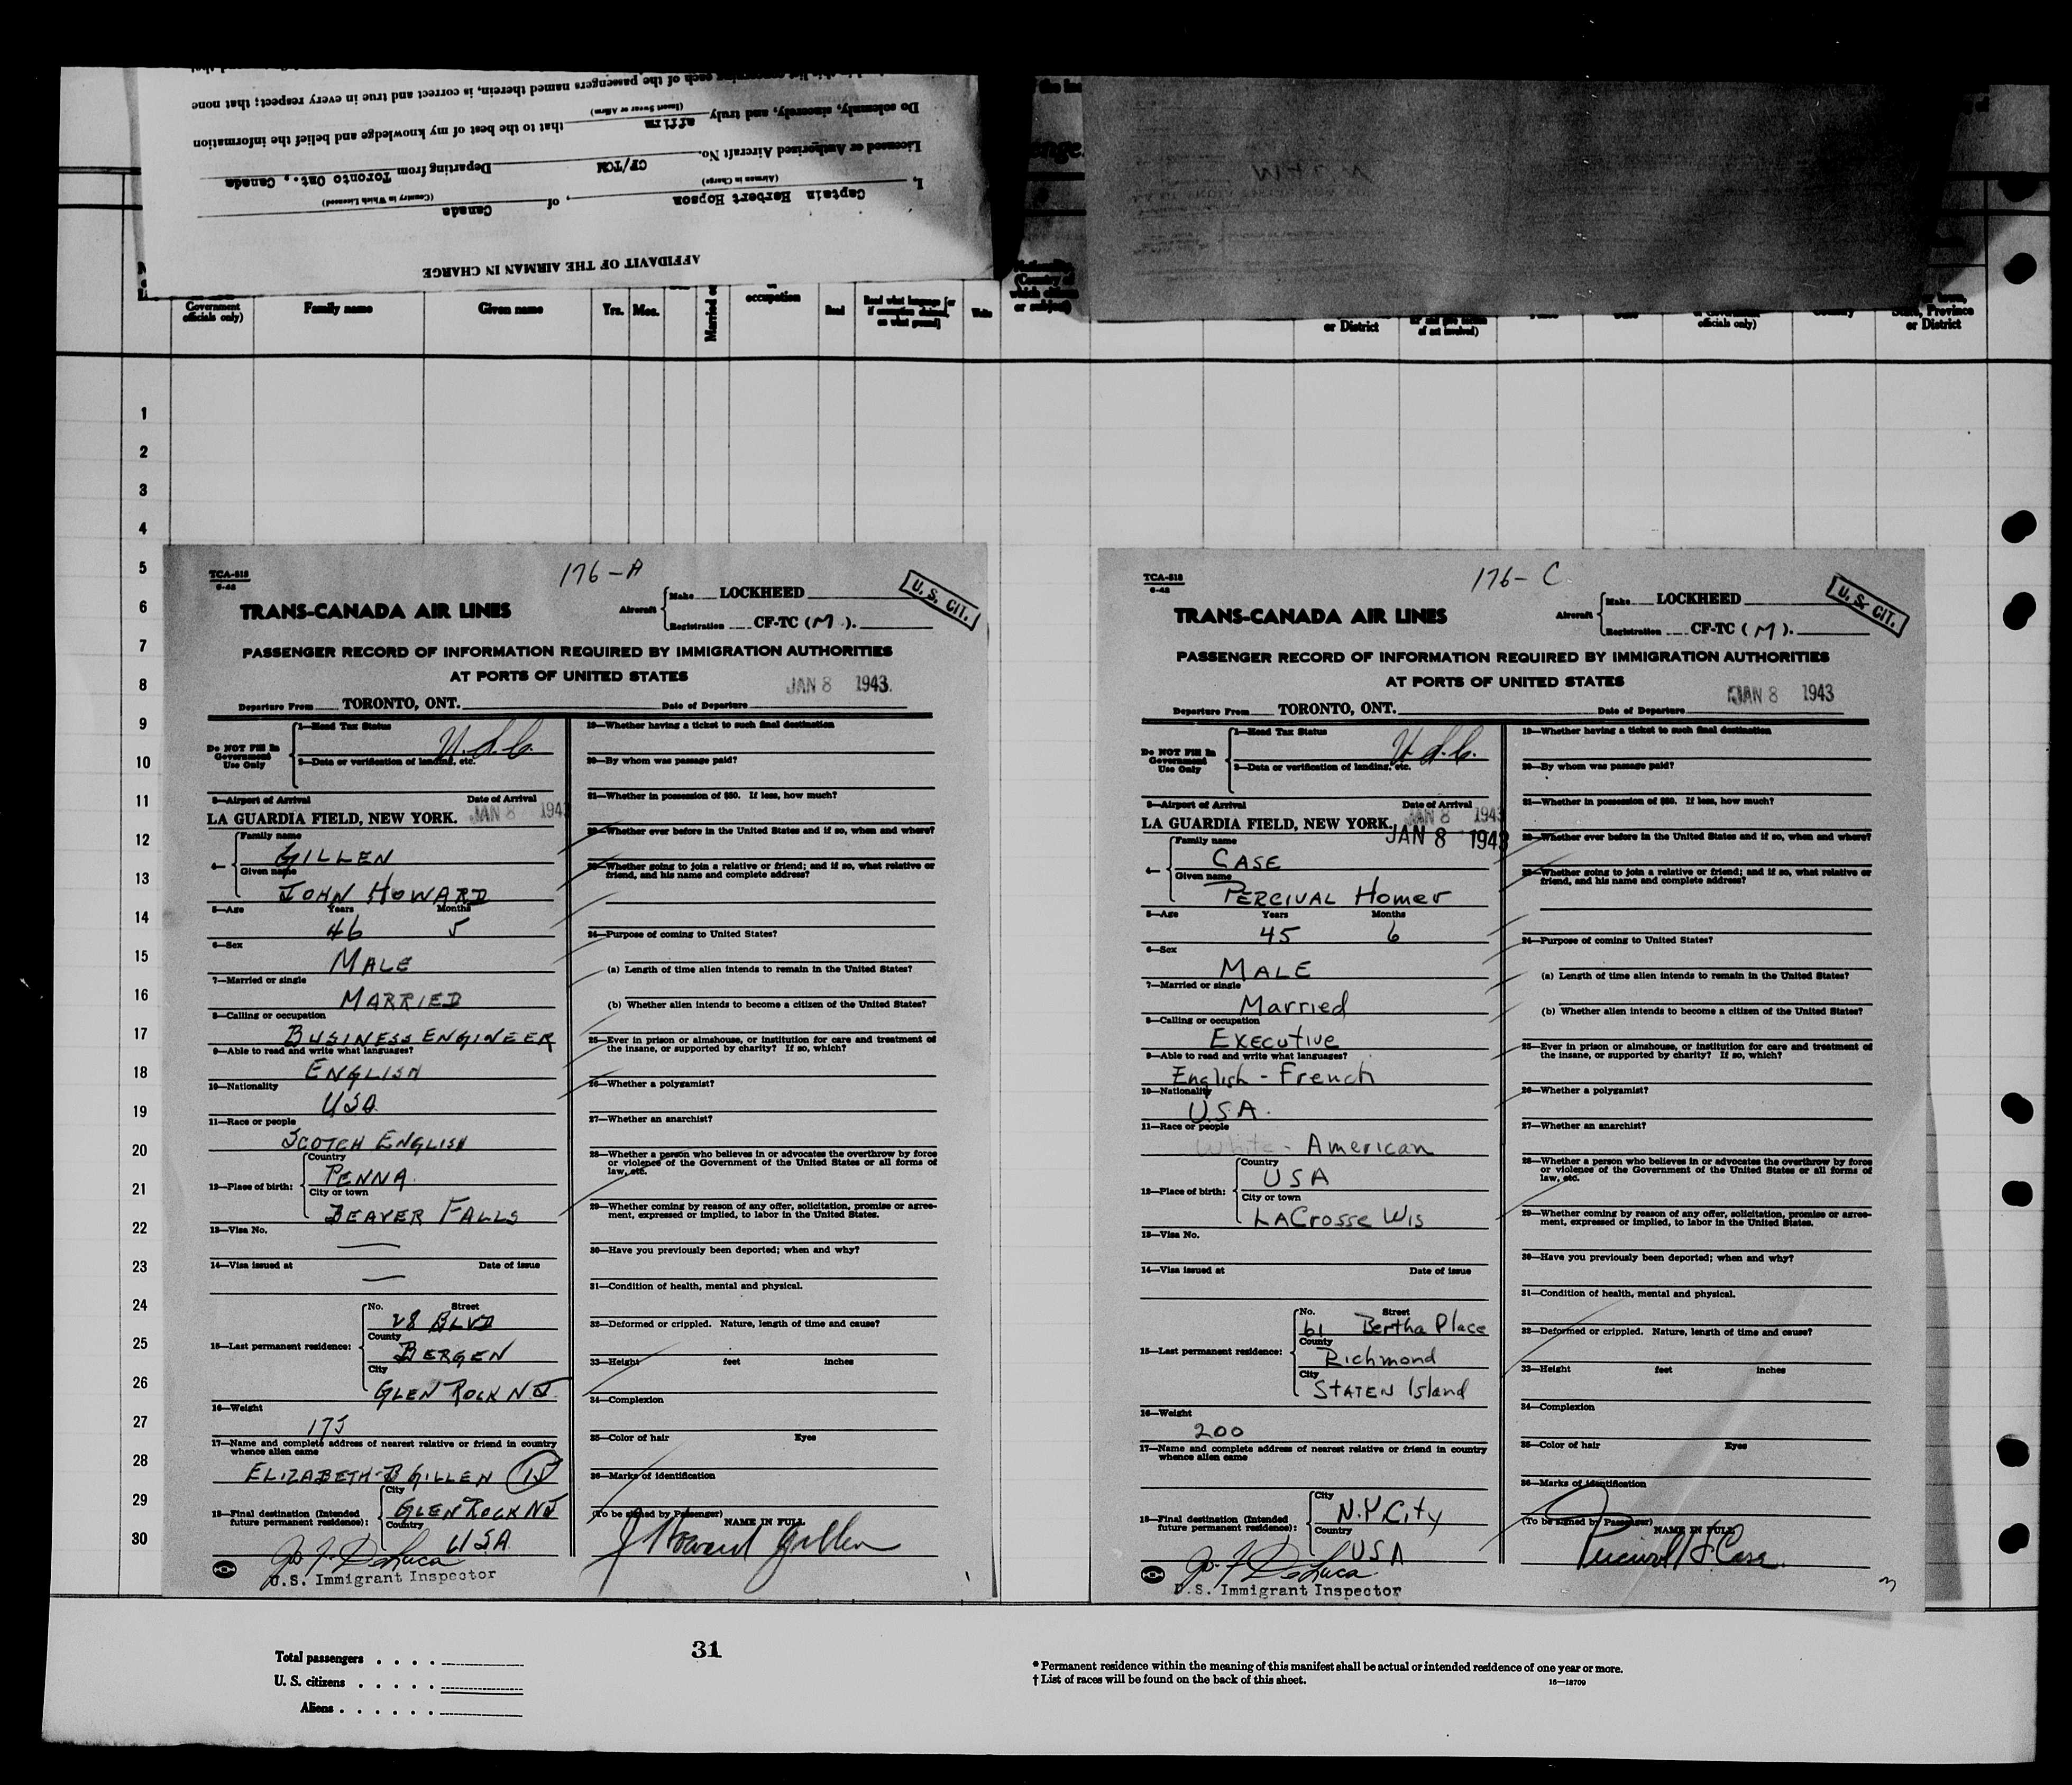 AFFIDAVIT OF THE AIRMAN IN CHARGE
I, Captain Herbert Hopson, of Canada
(Airman in Charge) (Country in Which Licensed)
Licensed or Authorized Aircraft No. CF/TCM Departing from Toronto Ont., Canada
Do solemnly, sincerely, and truly affirm that to the best of my knowledge and belief the information
(Insert Swear or Affirm)
each of the passengers named therein, is correct and true in every respect; that none
Government officials only) Family name Given name Yrs. Mos. Married or occupation Read Read what language [or if exemption claimed, on what ground] Write Nationality (Country of which citizen or subject) or District officials only) Country State, Province or District
1
2
3
4
5
6
7
8
9
10
11
12
13
14
15
16
17
18
19
20
21
22
23
24
25
26
27
28
29
30
176-A
TCA-818
6-42
TRANS-CANADA AIR LINES
Aircraft Make LOCKHEED
Registration CF-TC (M).
U. S. CIT.
PASSENGER RECORD OF INFORMATION REQUIRED BY IMMIGRATION AUTHORITIES
AT PORTS OF UNITED STATES
JAN 8 1943
Departure From TORONTO, ONT. Date of Departure
Do NOT Fill In Government Use Only
1—Head Tax Status
U.S.C.
2—Data or verification of landing, etc.
3—Airport of Arrival Date of Arrival
LA GUARDIA FIELD, NEW YORK. JAN 8 1943
4— Family name
GILLEN
Given name
JOHN HOWARD
5—Age Years Months
46 5
6—Sex
MALE
7—Married or single
MARRIED
8—Calling or occupation
BUSINESS ENGINEER
9—Able to read and write what languages?
ENGLISH
10—Nationality
USA
11—Race or people
SCOTCH ENGLISH
12—Place of birth: Country
PENNA.
City or town
BEAVER FALLS
13—Visa No.
14—Visa issued at Date of issue
15—Last permanent residence: No. Street
28 BLVD
County
BERGEN
City
GLEN ROCK N J
16—Weight
175
17—Name and complete address of nearest relative or friend in country whence alien came
ELIZABETH B GILLEN (15)
18—Final destination (Intended future permanent residence): City
GLEN ROCK NJ
Country
USA
Jos F DeLuca
U.S. Immigrant Inspector
19—Whether having a ticket to such final destination
20—By whom was passage paid?
21—Whether in possession of $50. If less, how much?
22—Whether ever before in the United States and if so, when and where?
23—Whether going to join a relative or friend; and if so, what relative or friend, and his name and complete address?
24—Purpose of coming to United States?
(a) Length of time alien intends to remain in the United States?
(b) Whether alien intends to become a citizen of the United States?
25—Ever in prison or almshouse, or institution for care and treatment of the insane, or supported by charity? If so, which?
26—Whether a polygamist?
27—Whether an anarchist?
28—Whether a person who believes in or advocates the overthrow by force or violence of the Government of the United States or all forms of law, etc.
29—Whether coming by reason of any offer, solicitation, promise or agreement, expressed or implied, to labor in the United States.
30—Have you previously been deported; when and why?
31—Condition of health, mental and physical.
32—Deformed or crippled. Nature, length of time and cause?
33—Height feet inches
34—Complexion
35—Color of hair Eyes
36—Marks of identification
(To be signed by Passenger) NAME IN FULL
J Howard Gillen
176-C
TCA-818
6-42
TRANS-CANADA AIR LINES
Aircraft Make LOCKHEED
Registration CF-TC (M).
U. S. CIT.
PASSENGER RECORD OF INFORMATION REQUIRED BY IMMIGRATION AUTHORITIES
AT PORTS OF UNITED STATES
JAN 8 1943
Departure From TORONTO, ONT. Date of Departure
Do NOT Fill In Government Use Only
1—Head Tax Status
U.S.C.
2—Data or verification of landing, etc.
3—Airport of Arrival Date of Arrival
JAN 8 1943
LA GUARDIA FIELD, NEW YORK. JAN 8 1943
4— Family name
CASE
Given name
PERCIVAL Homer
5—Age Years Months
45 6
6—Sex
MALE
7—Married or single
Married
8—Calling or occupation
Executive
9—Able to read and write what languages?
English - French
10—Nationality
U.S.A.
11—Race or people
White - American
12—Place of birth: Country
USA
City or town
LACrosse Wis
13—Visa No.
14—Visa issued at Date of issue
15—Last permanent residence: No. Street
61 Bertha Place
County
Richmond
City
STATEN Island
16—Weight
200
17—Name and complete address of nearest relative or friend in country whence alien came
18—Final destination (Intended future permanent residence): City
N.Y. City
Country
USA
Jos F DeLuca
U.S. Immigrant Inspector
19—Whether having a ticket to such final destination
20—By whom was passage paid?
21—Whether in possession of $50. If less, how much?
22—Whether ever before in the United States and if so, when and where?
23—Whether going to join a relative or friend; and if so, what relative or friend, and his name and complete address?
24—Purpose of coming to United States?
(a) Length of time alien intends to remain in the United States?
(b) Whether alien intends to become a citizen of the United States?
25—Ever in prison or almshouse, or institution for care and treatment of the insane, or supported by charity? If so, which?
26—Whether a polygamist?
27—Whether an anarchist?
28—Whether a person who believes in or advocates the overthrow by force or violence of the Government of the United States or all forms of law, etc.
29—Whether coming by reason of any offer, solicitation, promise or agreement, expressed or implied, to labor in the United States.
30—Have you previously been deported; when and why?
31—Condition of health, mental and physical.
32—Deformed or crippled. Nature, length of time and cause?
33—Height feet inches
34—Complexion
35—Color of hair Eyes
36—Marks of identification
(To be signed by Passenger) NAME IN FULL
Percival H Case
3
Total passengers
U. S. citizens
Aliens
31
* Permanent residence within the meaning of this manifest shall be actual or intended residence of one year or more.
† List of races will be found on the back of this sheet.
16—18709